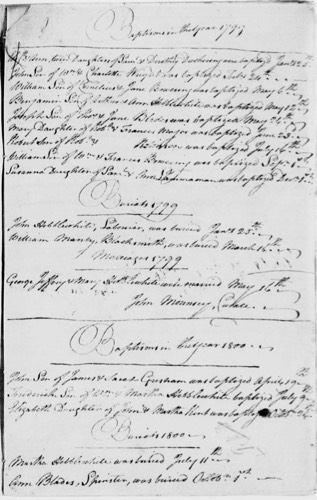 Baptisms in the year 1799
Ann, Daughter of & Dorothy was baptized Jan'y
John Son of Wm & Charlotte Wright was baptized Feb: 24th
William Son of Cornelius & Jane was baptized May 6th
Benjamin Son of & Ann Hebblewhite was baptized May 12th
Joseph Son of Thos & Jane Blades was baptized May 26th
Mary Daughter of Robt & Frances was baptized June 23
Robert Son of Robt & was baptized July 16th
William Son of Wm & Frances was baptized Sept 1st
Susanna Daughter of & Ann was baptized Decr 1st
Burials 1799
John Hebblewhite, was buried Jany 25th
William Manby, Blacksmith, was buried March 14th
Marriages 1799
George Jeffery & Mary Hebblewhite were married May 16th
John Curate
Baptisms in the year 1800
John Son of James & Sarah was baptized April 19th
Frederick Son of Wm & Martha Hebblewhite baptized July 9th
Elizabeth Daughter of John & Martha was baptized Octob
Burials 1800
Martha Hebblewhite was buried July 11th
Ann Blades, Spinster, was buried Octob 1st